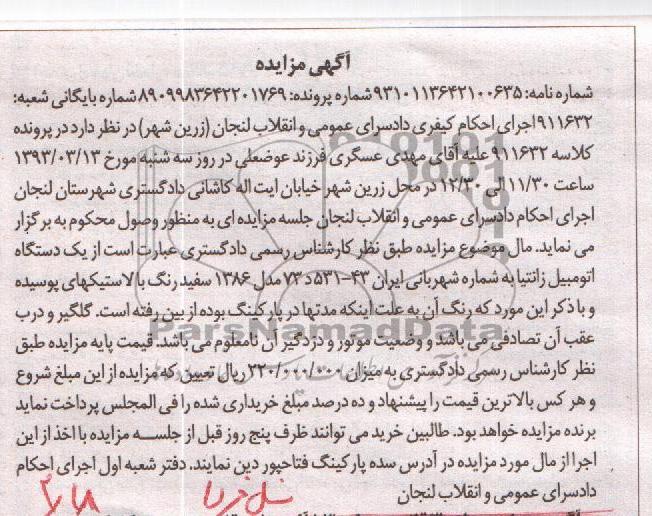 آگهی مزایده
شماره نامه: ۹۳۱۰۱۱۳۶۴۲۱۰۰۶۳۵ شماره پرونده: ۸۹۰۹۹۸۳۶۴۲۲۰۱۷۶۹ شماره بایگانی شعبه:
۹۱۱۶۳۲ اجرای احکام کیفری دادسرای عمومی و انقلاب لنجان (زرین شهر) در نظر دارد در پرونده
کلاسه ۹۱۱۶۳۲ علیه آقای مهدی عسگری فرزند عوضعلی در روز سه شنبه مورخ ۱۳۹۳/۰۳/۱۳
ساعت ۱۱/۳۰ الی ۱۲/۳۰ در محل زرین شهر خیابان ایت اله کاشانی دادگستری شهرستان لنجان
اجرای احکام دادسرای عمومی و انقلاب لنجان جلسه مزایده ای به منظور وصول محکوم به برگزار
می نماید. مال موضوع مزایده طبق نظر کارشناس رسمی دادگستری عبارت است از یک دستگاه
اتومبیل زانتیا به شماره شهربانی ایران ۴۳-۵۳۱ د ۷۳ مدل ۱۳۸۶ سفید رنگ با لاستیکهای پوسیده
و با ذکر این مورد که رنگ آن به علت اینکه مدتها در پارکینگ بوده از بین رفته است. گلگیر و درب
عقب آن تصادفی می باشد و وضعیت موتور و دزدگیر آن نامعلوم می باشد. قیمت پایه مزایده طبق
نظر کارشناس رسمی دادگستری به میزان ۲۲۰/۰۰۰/۰۰۰ ریال تعیین که مزایده از این مبلغ شروع
و هر کس بالاترین قیمت را پیشنهاد و ده درصد مبلغ خریداری شده را فی المجلس پرداخت نماید
برنده مزایده خواهد بود. طالبین خرید می توانند ظرف پنج روز قبل از جلسه مزایده با اخذ از این
اجرا از مال مورد مزایده در آدرس سده پارکینگ فتاحپور دین نمایند. دفتر شعبه اول اجرای احکام
دادسرای عمومی و انقلاب لنجان
ParsNamadData
نسل فردا